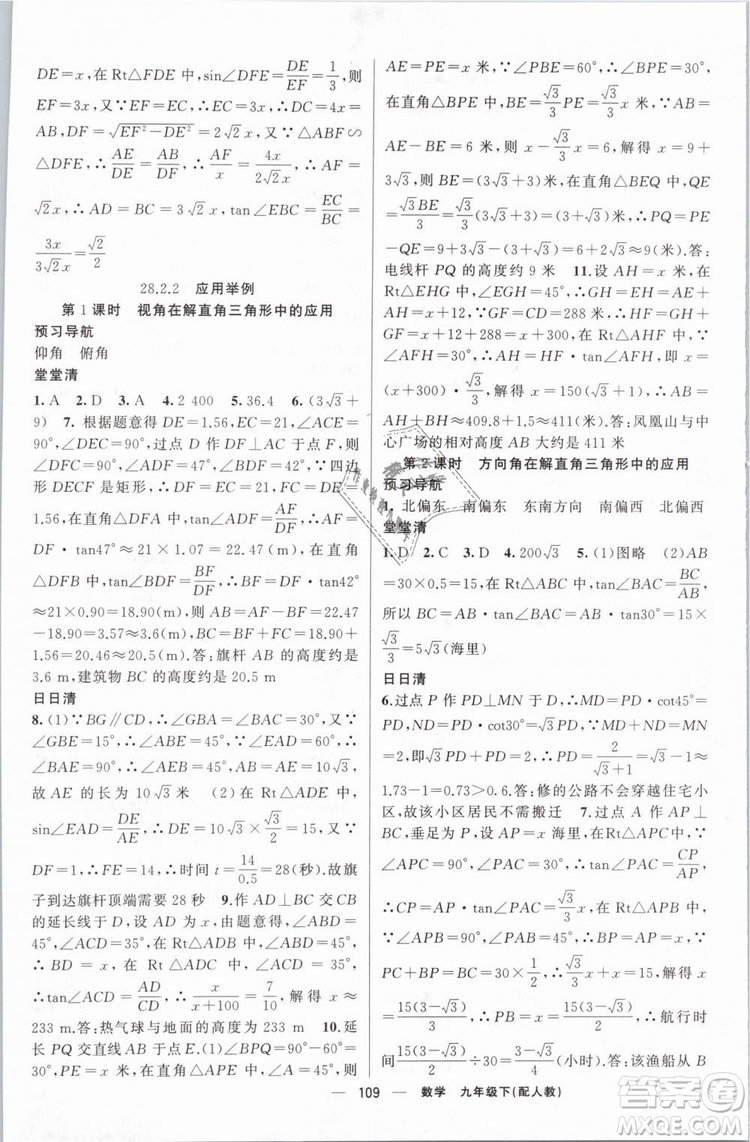 DE=x,在 Rt△FDE 中,sin∠DFE=DE/EF=1/3,则
EF=3x,又∵EF=EC,∴EC=3x,∴DC=4x=
AB,DF=√(EF²-DE²)=2√2x,又∵△ABF∽
△DFE,∴AE/DE=AB/DF,∴AF/x=4x/(2√2x),∴AF=
√2x,∴AD=BC=3√2x,tan∠EBC=EC/BC=
3x/(3√2x)=√2/2
28.2.2 应用举例
第1课时 视角在解直角三角形中的应用
预习导航
仰角 俯角
堂堂清
1.A 2.D 3.A 4.2 400 5.36.4 6.(3√3+
9) 7.根据题意得 DE=1.56,EC=21,∠ACE=
90°,∠DEC=90°,过点 D 作 DF⊥AC 于点 F,则
∠DFC=90°,∠ADF=47°,∠BDF=42°,∵四边
形 DECF 是矩形,∴DF=EC=21,FC=DE=
1.56,在直角△DFA 中,tan∠ADF=AF/DF,∴AF=
DF·tan47°≈21×1.07=22.47(m).在直角
△DFB 中,tan∠BDF=BF/DF,∴BF=DF·tan42°
≈21×0.90=18.90(m)则 AB=AF-BF=22.47
-18.90=3.57≈3.6(m),BC=BF+FC=18.90+
1.56=20.46≈20.5(m).答:旗杆 AB 的高度约是
3.6 m,建筑物 BC 的高度约是 20.5 m
日日清
8.(1)∵BG∥CD,∴∠GBA=∠BAC=30°,又∵
∠GBE=15°,∴∠ABE=45°,∵∠EAD=60°,∴
∠BAE=90°,∴∠AEB=45°,∴AB=AE=10√3,
故 AB 的长为10√3米 (2)在 Rt△ADE 中,
sin∠EAD=DE/AE,∴DE=10√3×√3/2=15,又∵CF
=DF=1,∴FE=14,∴时间 t=14/0.5=28(秒).故旗
子到达旗杆顶端需要 28 秒 9.作 AD⊥BC 交 CB
的延长线于 D,设 AD 为 x,由题意得,∠ABD=
45°,∠ACD=35°,在 Rt△ADB 中,∠ABD=45°,
∴DB=x,在 Rt△ADC 中,∠ACD=35°,
∴tan∠ACD=AD/CD,∴x/(x+100)=7/10,解得 x≈
233 m.答:热气球与地面的高度为 233 m 10.延
长 PQ 交直线 AB 于点 E.(1)∠BPQ=90°-60°=
30° (2)设 PE=x 米.在直角△APE 中,∠A=45°,则
AE=PE=x 米,∵∠PBE=60°,∴∠BPE=30°,
在直角△BPE 中,BE=√3/3PE=√3/3x 米,∵AB=
AE-BE=6 米,则 x-√3/3x=6,解得 x=9+
3√3.则 BE=(3√3+3)米.在直角△BEQ 中,QE
=√3/3BE=√3/3(3√3+3)=(3+√3)米.∴PQ=PE
-QE=9+3√3-(3+√3)=6+2√3≈9(米).答:
电线杆 PQ 的高度约 9 米 11.设 AH=x 米,在
Rt△EHG 中,∵∠EGH=45°,∴GH=EH=AE+
AH=x+12,∵GF=CD=288,∴HF=GH+GF
=x+12+288=x+300,在 Rt△AHF 中,
∵∠AFH=30°,∴AH=HF·tan∠AFH,即 x=
(x+300)·√3/3,解得 x=150(√3+1)≈409.8,∴AB=
AH+BH≈409.8+1.5≈411(米).答:凤凰山与中
心广场的相对高度 AB 大约是 411 米
第2课时 方向角在解直角三角形中的应用
预习导航
1.北偏东 南偏东 东南方向 南偏西 北偏西
堂堂清
1.D 2.C 3.D 4.200√3 5.(1)图略 (2)AB
=30×0.5=15,在 Rt△ABC 中,tan∠BAC=BC/AB,
所以 BC=AB·tan∠BAC=AB·tan30°=15×
√3/3=5√3(海里)
日日清
6.过点 P 作 PD⊥MN 于 D,∴MD=PD·cot45°=
PD,ND=PD·cot30°=√3PD,∵MD+ND=MN
=2,即√3PD+PD=2,∴PD=2/(√3+1)=√3-1≈
1.73-1=0.73>0.6.答:修的公路不会穿越住宅小
区,故该小区居民不需搬迁 7.过点 A 作 AP⊥
BC,垂足为 P,设 AP=x 海里.在 Rt△APC 中,
∵∠APC=90°,∠PAC=30°,∴tan∠PAC=CP/AP,
∴CP=AP·tan∠PAC=√3/3x.在 Rt△APB 中,
∵∠APB=90°,∠PAB=45°,∴BP=AP=x.∵
PC+BP=BC=30×1/2,∴√3/3x+x=15,解得 x
=15(3-√3)/2,∴PB=x=15(3-√3)/2,∴航行时
间15(3-√3)/2÷30=(3-√3)/4(小时).答:该渔船从 B
109 数学 九年级下(配人教)
答案圈